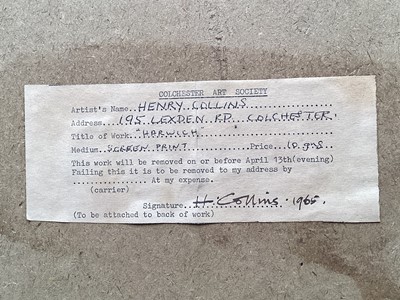 COLCHESTER ART SOCIETY
Artist's Name..HENRY COLLINS
Address...195 LEXDEN RD COLCHESTER.
Title of Work "HARWICH"
Medium..SCREEN PRINT.........Price..10 gns
This work will be removed on or before April 13th(evening)
Failing this it is to be removed to my address by
................ At my expense.
(carrier)
Signature..H. Collins. 1965.
(To be attached to back of work)